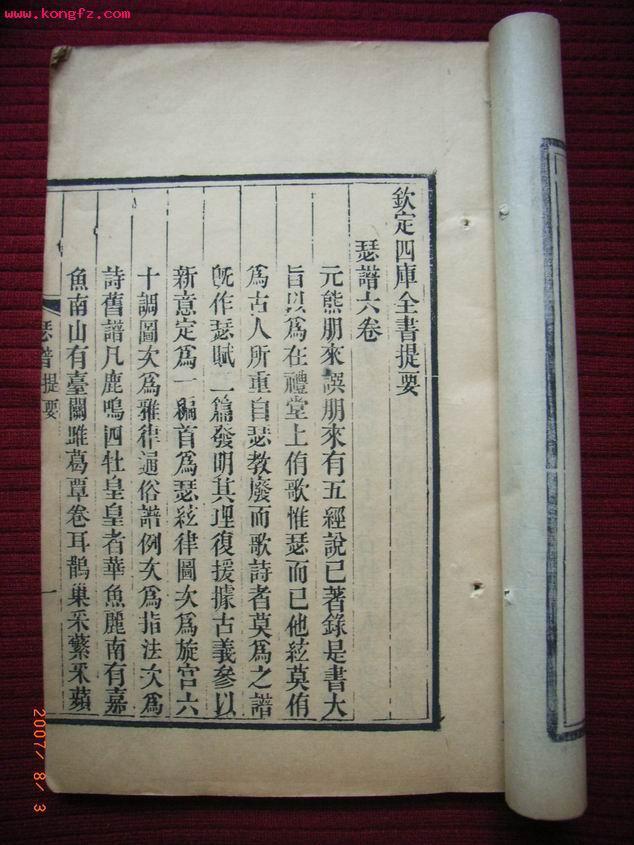 www.kongfz.com
欽定四庫全書提要
瑟譜六卷
元熊朋來譔朋來有五經說已著錄是書大
旨以為在禮堂上侑歌惟瑟而已他絃莫侑
為古人所重自瑟教廢而歌詩者莫為之譜
旣作瑟賦二篇發明其理復援據古義參以
新意定為一編首為瑟絃律圖次為旋宮六
十調圖次為雅律通俗譜例次為指法次為
詩舊譜凡鹿鳴四牡皇皇者華魚麗南有嘉
魚南山有臺關雎葛覃卷耳鵲巢采蘩采蘋
瑟譜提要
一
2007/ 8/ 3